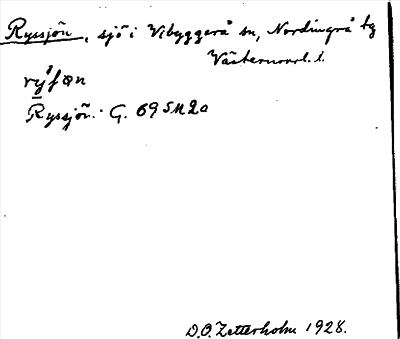 Ryssjön, sjö i Vibyggerå sn, Nordingrå tg
Västernorrl. l.
Ryssjön. G. 69 SM2a
D.O. Zetterholm 1928.